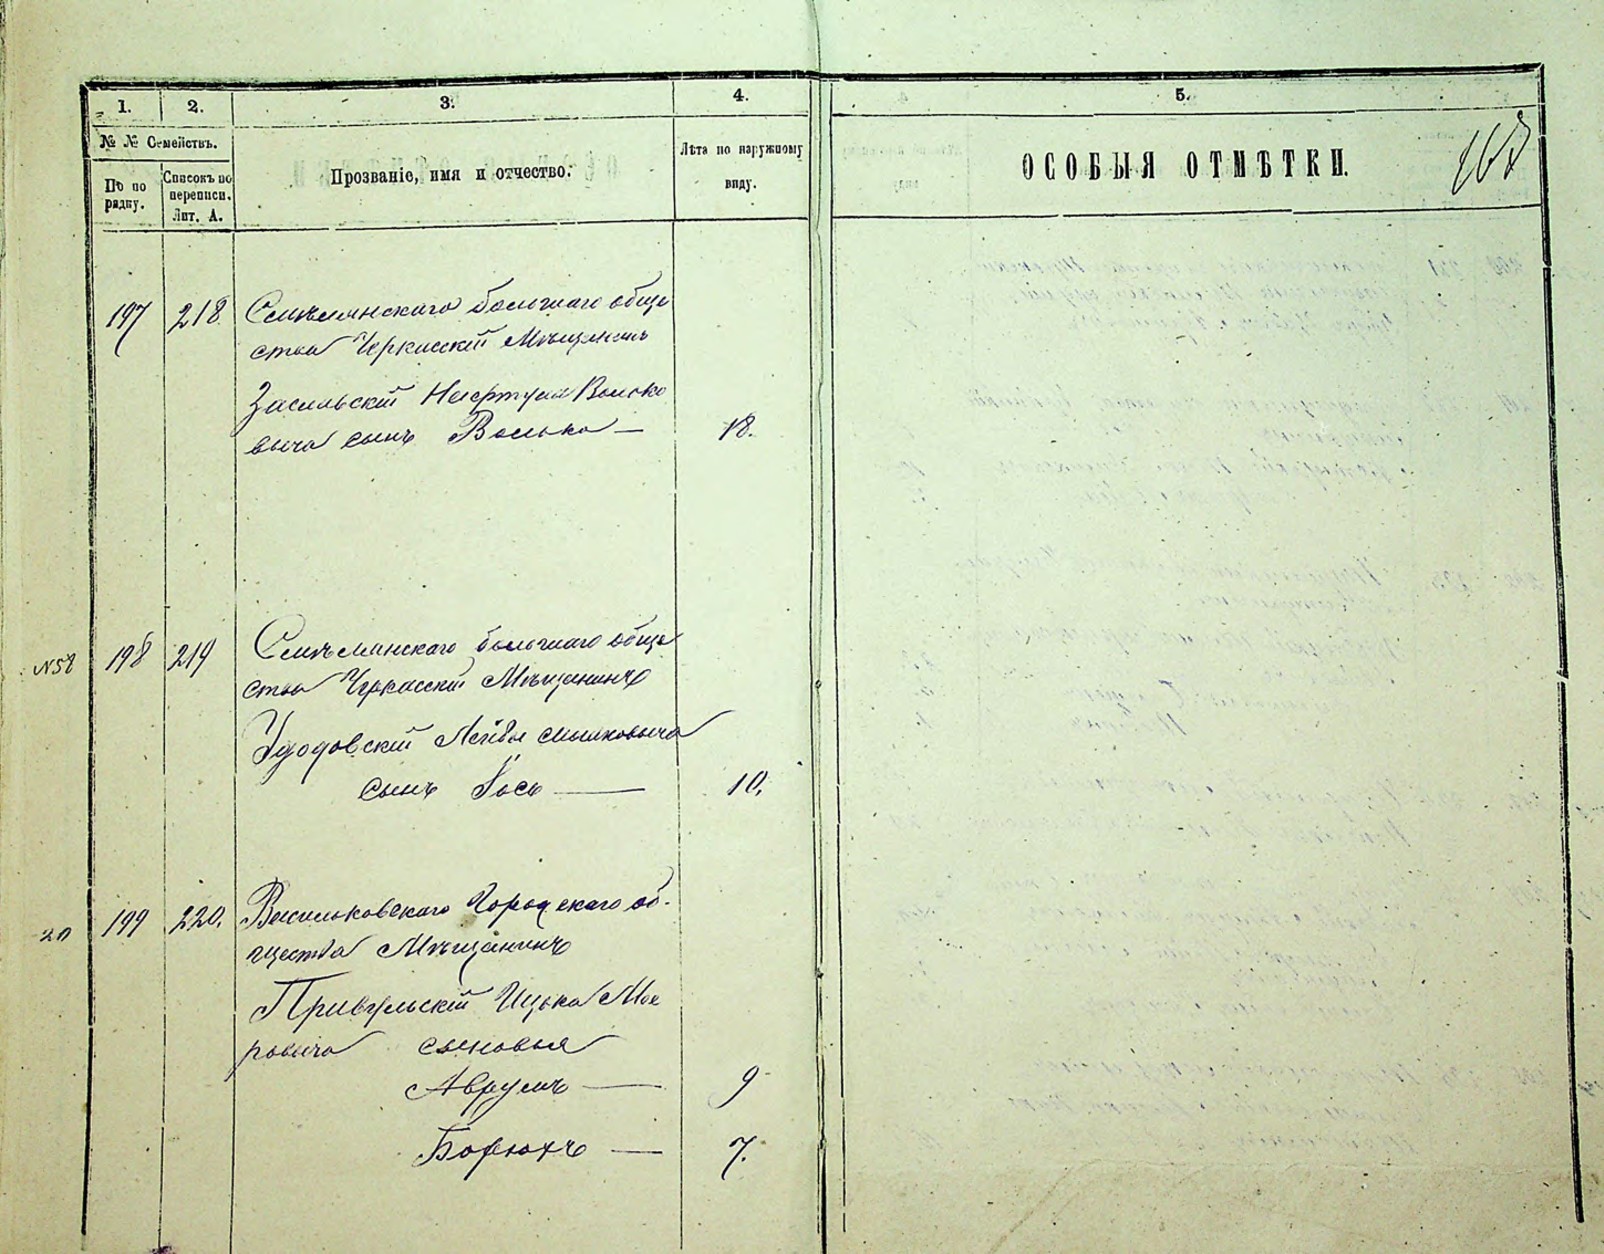 1.
2.
3.
4.
5.
№ № Семействъ.
По по
рядку.
Списокъ по
переписи.
Лит. А.
Прозваніе, имя и отчество.
Лѣта по наружному
виду.
ОСОБЫЯ ОТМѢТКИ.
197 218 Смѣлянскаго большаго обще
ства Черкасскій Мѣщанинъ
Заславскій Волько
вича сынъ Волько — 18.
N58 198 219 Смѣлянскаго большаго обще
ства Черкасскій Мѣщанинъ
Удодовскій Лейбы
сынъ Іось — 10.
20 199 220. Васильковскаго Городскаго об-
щества Мѣщанинъ
Привульскій Ицька Мое
ровича сыновья
Аврумъ — 9
Борюхъ — 7.